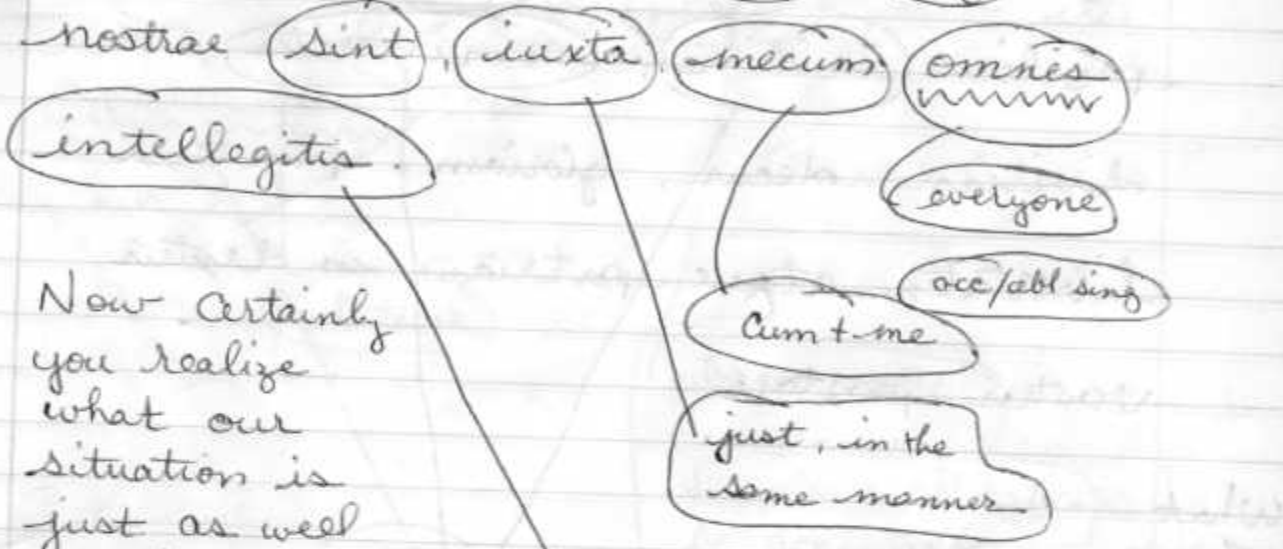 nostrae sint, iuxta mecum omnes
intellegitis.
everyone
acc/abl sing
cum + me
just, in the
same manner
Now certainly
you realize
what our
situation is
just as well